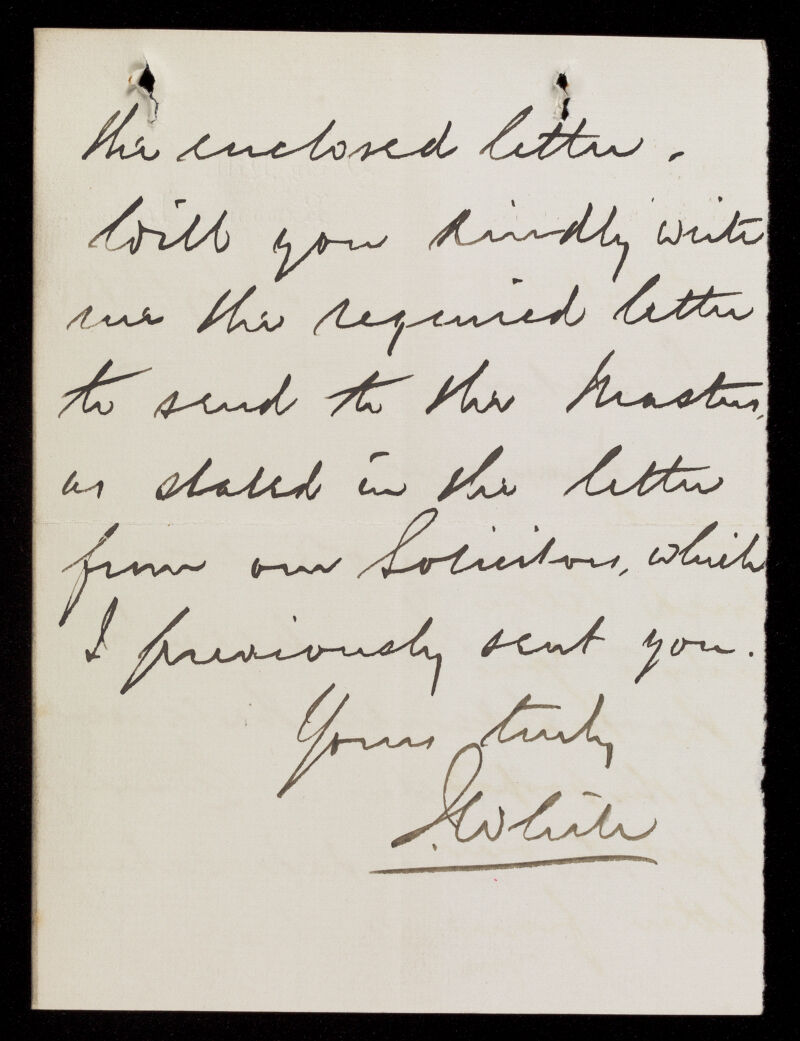 the enclosed letter.
Will you kindly write
me the required letter
to send to the Masters,
as stated in the letter
from our Solicitors, which
I previously sent you.
Yours truly
J. White